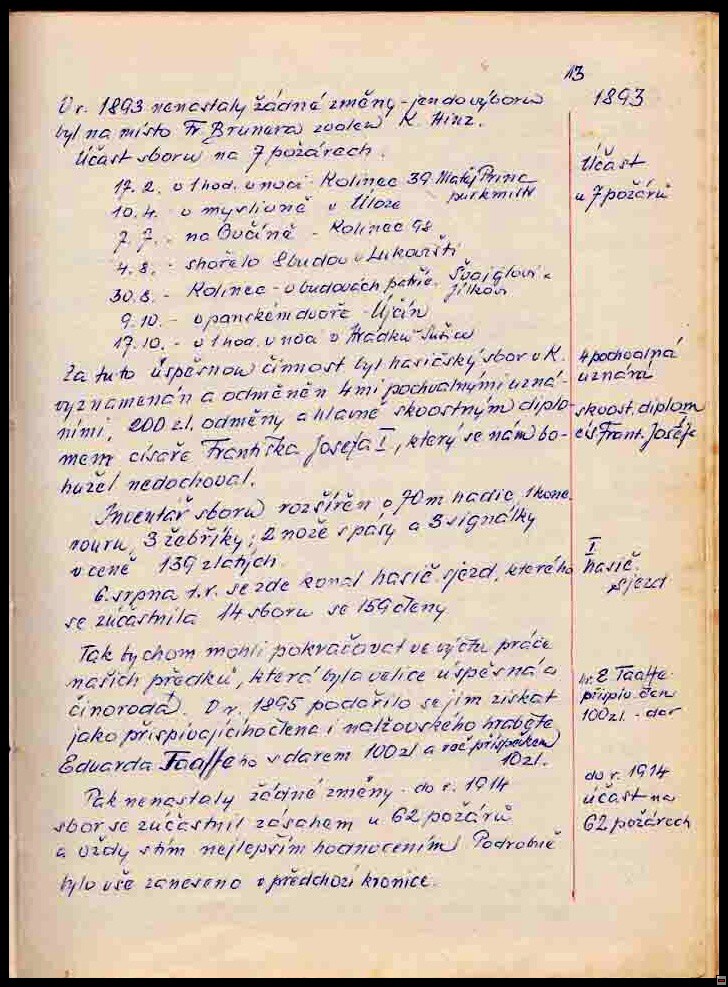 13
V r. 1893 nenastaly žádné změny - jen do výboru
byl na místo Fr. Brunera zvolen K. Hinz.
Účast sboru na 7 požárech.
17. 2. v 1 hod. v noci - Kolinec 39 Matěj Princ
purkmistr
10. 4. - v myslivně v Úloze
7. 7. - na Ovčíně - Kolinec 98
4. 8. - shořelo 8 budov v Lukovišti
30. 8. - Kolinec - v budovách patříc. Švajglovi a
Jílkovi
9. 10. - v panském dvoře - Újčín
17. 10. - v 1 hod. v noci v Hrádku - Sušice
Za tuto úspěsnou činnost byl hasičský sbor v K.
vyznamenán a odměněn 4mi pochvalnými uzná-
ními, 200 zl. odměny a hlavně skvostným diplo-
mem císaře Františka Josefa I, který se nám bo-
hužel nedochoval.
Inventář sboru rozšířen o 70 m hadic, 1 kone.
rouru, 3 žebříky, 2 nože s pasy a 3 signálky
v ceně 139 zlatých.
6. srpna t.r. se zde konal hasič. sjezd, kterého
se zúčastnila 14 sborů se 159 členy
Tak bychom mohli pokračovat ve výčtu práce
našich předků, která byla velice úspěsná a
činorodá. V r. 1895 podařilo se jim získat
jako přispívajícího člena i nalžovského hraběte
Eduarda Taaffeho s darem 100 zl a roč. příspěvkem
10 zl.
Pak nenastaly žádné změny - do r. 1914
sbor se zúčastnil zásahem u 62 požárů
a vždy s tím nejlepším hodnocením. Podrobně
bylo vše zaneseno v předchozí kronice.
1893
Účast
u 7 požárů
4 pochvalná
uznání
skvost. diplom
cís. Frant. Josefa
I
hasič.
sjezd
hr. E Taaffe
přispív. člen
100 zl. - dar
do r. 1914
účast na
62 požárech